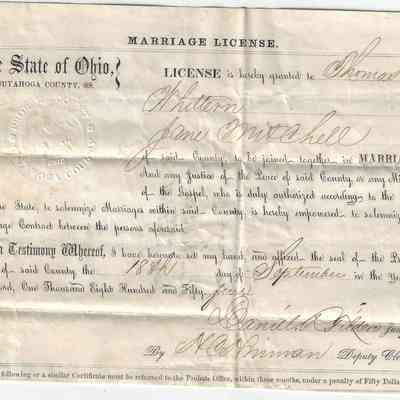 MARRIAGE LICENSE.
e State of Ohio,
UYAHOGA COUNTY, SS.
LICENSE is hereby granted to Thomas
Whittern
Jane Mitchell
of said County, to be joined together in MARRIA
And any Justice of the Peace of said County, or any Mi
of the Gospel, who is duly authorized according to the
he State, to solemnize Marriages within said County, is hereby empowered to solemniz
age Contract between the persons aforesaid.
n Testimony Whereof, I have hereunto set my hand, and affixed the seal of the P
of said County, the 18th day of September in the Yea
ord, One Thousand Eight Hundred and Fifty-
Daniel R Tilden Jud
By Deputy Cle
following or a similar Certificate must be returned to the Probate Office, within three months, under a penalty of Fifty Dolla